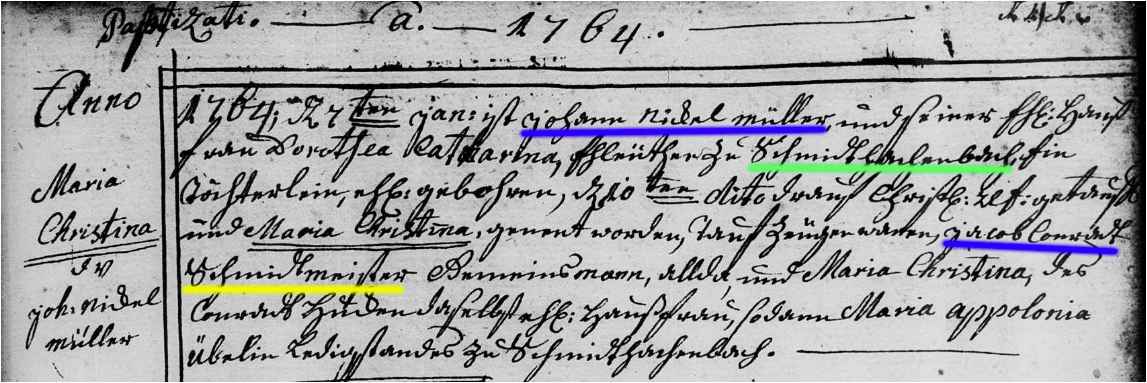 Baptizati. a. 1764.
Anno
Maria
Christina
dv
joh: Nickel
müller
1764; d 27 ten jan: ist johann Nickel müller, und seiner Ehl: Hauß
frau Dorothea Katharina, Ehleüthen zu Schmidthachenbach, Ein
Töchterlein, ehl: gebohren, d 10 ten dito drauf Christl: getauft
und Maria Christina, genent worden, Tauf Zeugen waren, jacob Conradt
Schmidtmeister Gemeinsmann, allda, und Maria Christina, des
Conradt daselbst ehl: Haußfrau, sodann Maria appolonia
übelin ledigstandes zu Schmidthachenbach.